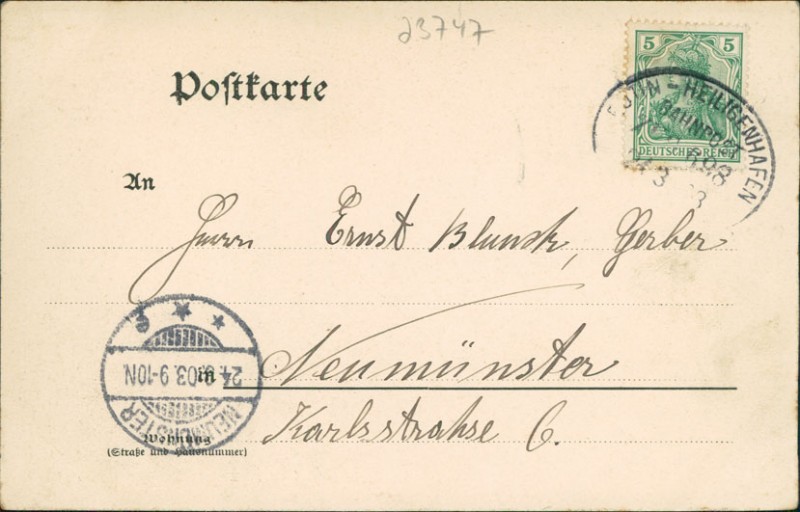 23747
5 5
DEUTSCHES REICH
EUTIN - HEILIGENHAFEN
BAHNPOST
Postkarte
An
Herrn Ernst Blunck, Gerber
NEUMÜNSTER
24. 03. 9-10N
in Neumünster
Karlsstrahse 6.
Wohnung
(Straße und Hausnummer)